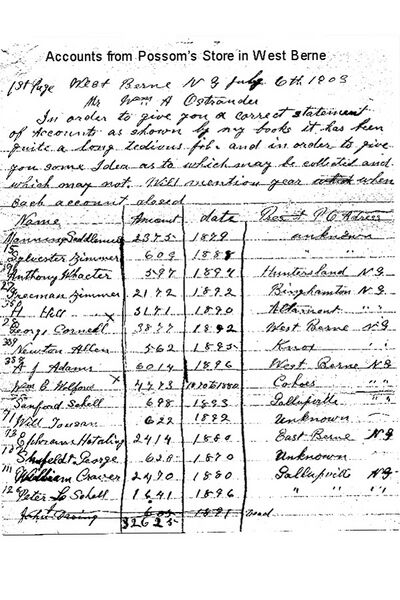 Accounts from Possom's Store in West Berne
1st Page West Berne N Y July 6th 1903
Mr Wm A Ostrander
In order to give you a correct statement
of accounts as shown by my books it has been
quite a long tedious job and in order to give
you some Idea as to which may be collected and
which may not. Will mention year when
each account closed
Name Amount date Present P.O. Adress
Manning 2375 1879 unknown
Sylvester Zimmer 609 1888 "
Anthony 597 1894 Huntersland N Y
Freeman Zimmer 2172 1892 Binghamton N Y
H. Hill x 3171 1890 Altamont " "
George Cornell 3877 1892 West Berne N Y
Newton Allen 562 1895 Knox " "
A J Adams 6014 1896 West Berne N Y
Wm C Welford x 4773 1880 Cohoes " "
Sanford Schell 698 1893 Gallupville " "
Will Tousan 622 1892 Unknown
Ephraim Hotaling 2414 1880 East Berne N Y
Shufeldt George 628 1870 Unknown
William Craver 2470 1880 Gallupville N Y
Peter L Schell 1641 1896 " " "
John 605 1891 Dead
32625